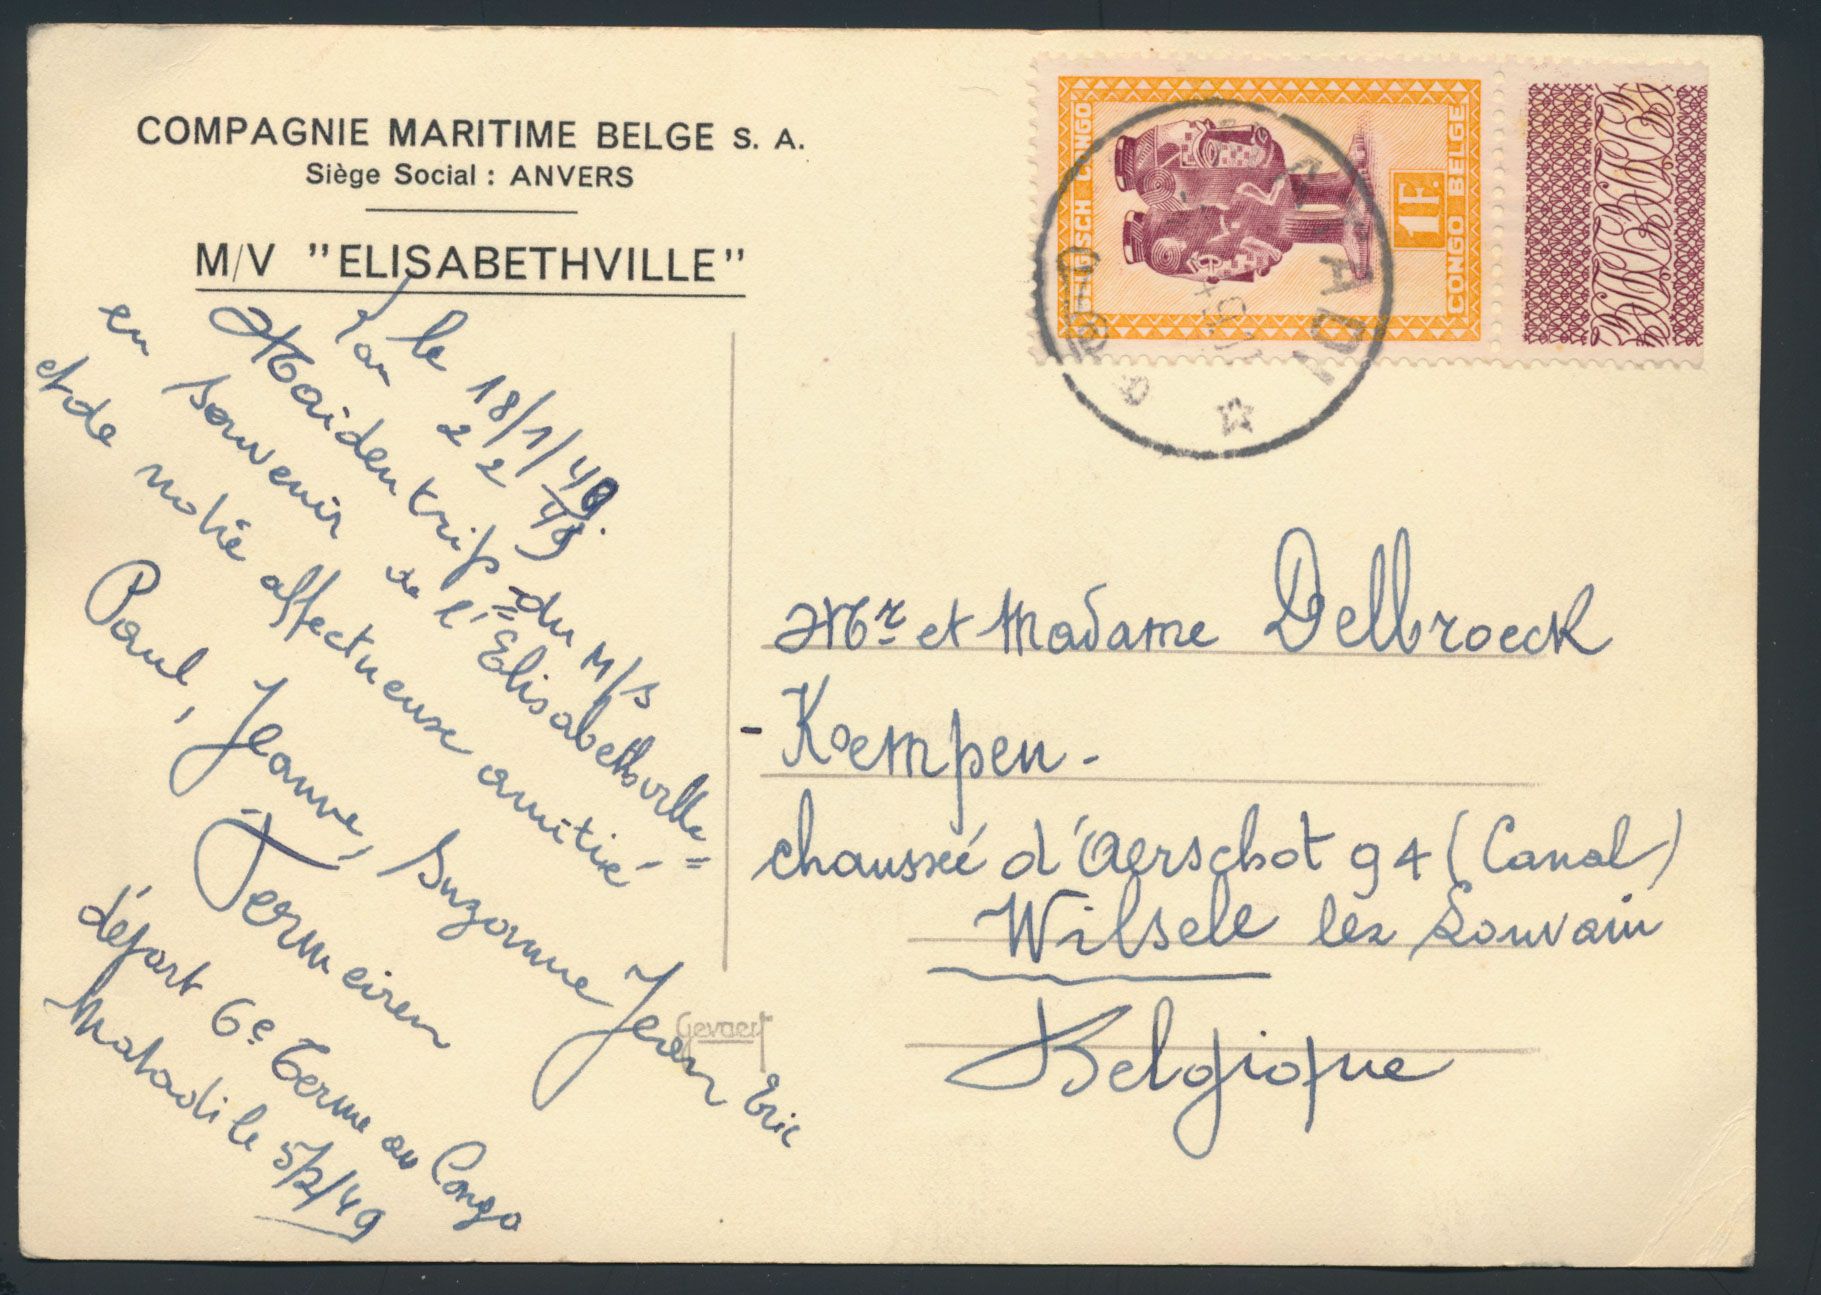 COMPAGNIE MARITIME BELGE S. A.
Siège Social : ANVERS
M/V "ELISABETHVILLE"
le 18/1/49
2 2 49
Maidentrip du M/S
en souvenir de l'"Elisabethville"
et de notre affectueuse amitié
Paul, Jeanne, Suzanne Jean Eric
Termeiren
départ 6e Terme au Congo
Matadi le 5/2/49
BELGISCH CONGO
1 F.
CONGO BELGE
MATADI
Mr et Madame Delbroeck
- Kempen -
chaussée d'Aerschot 94 (Canal)
Wilsele lez Louvain
Belgique
Gevaert